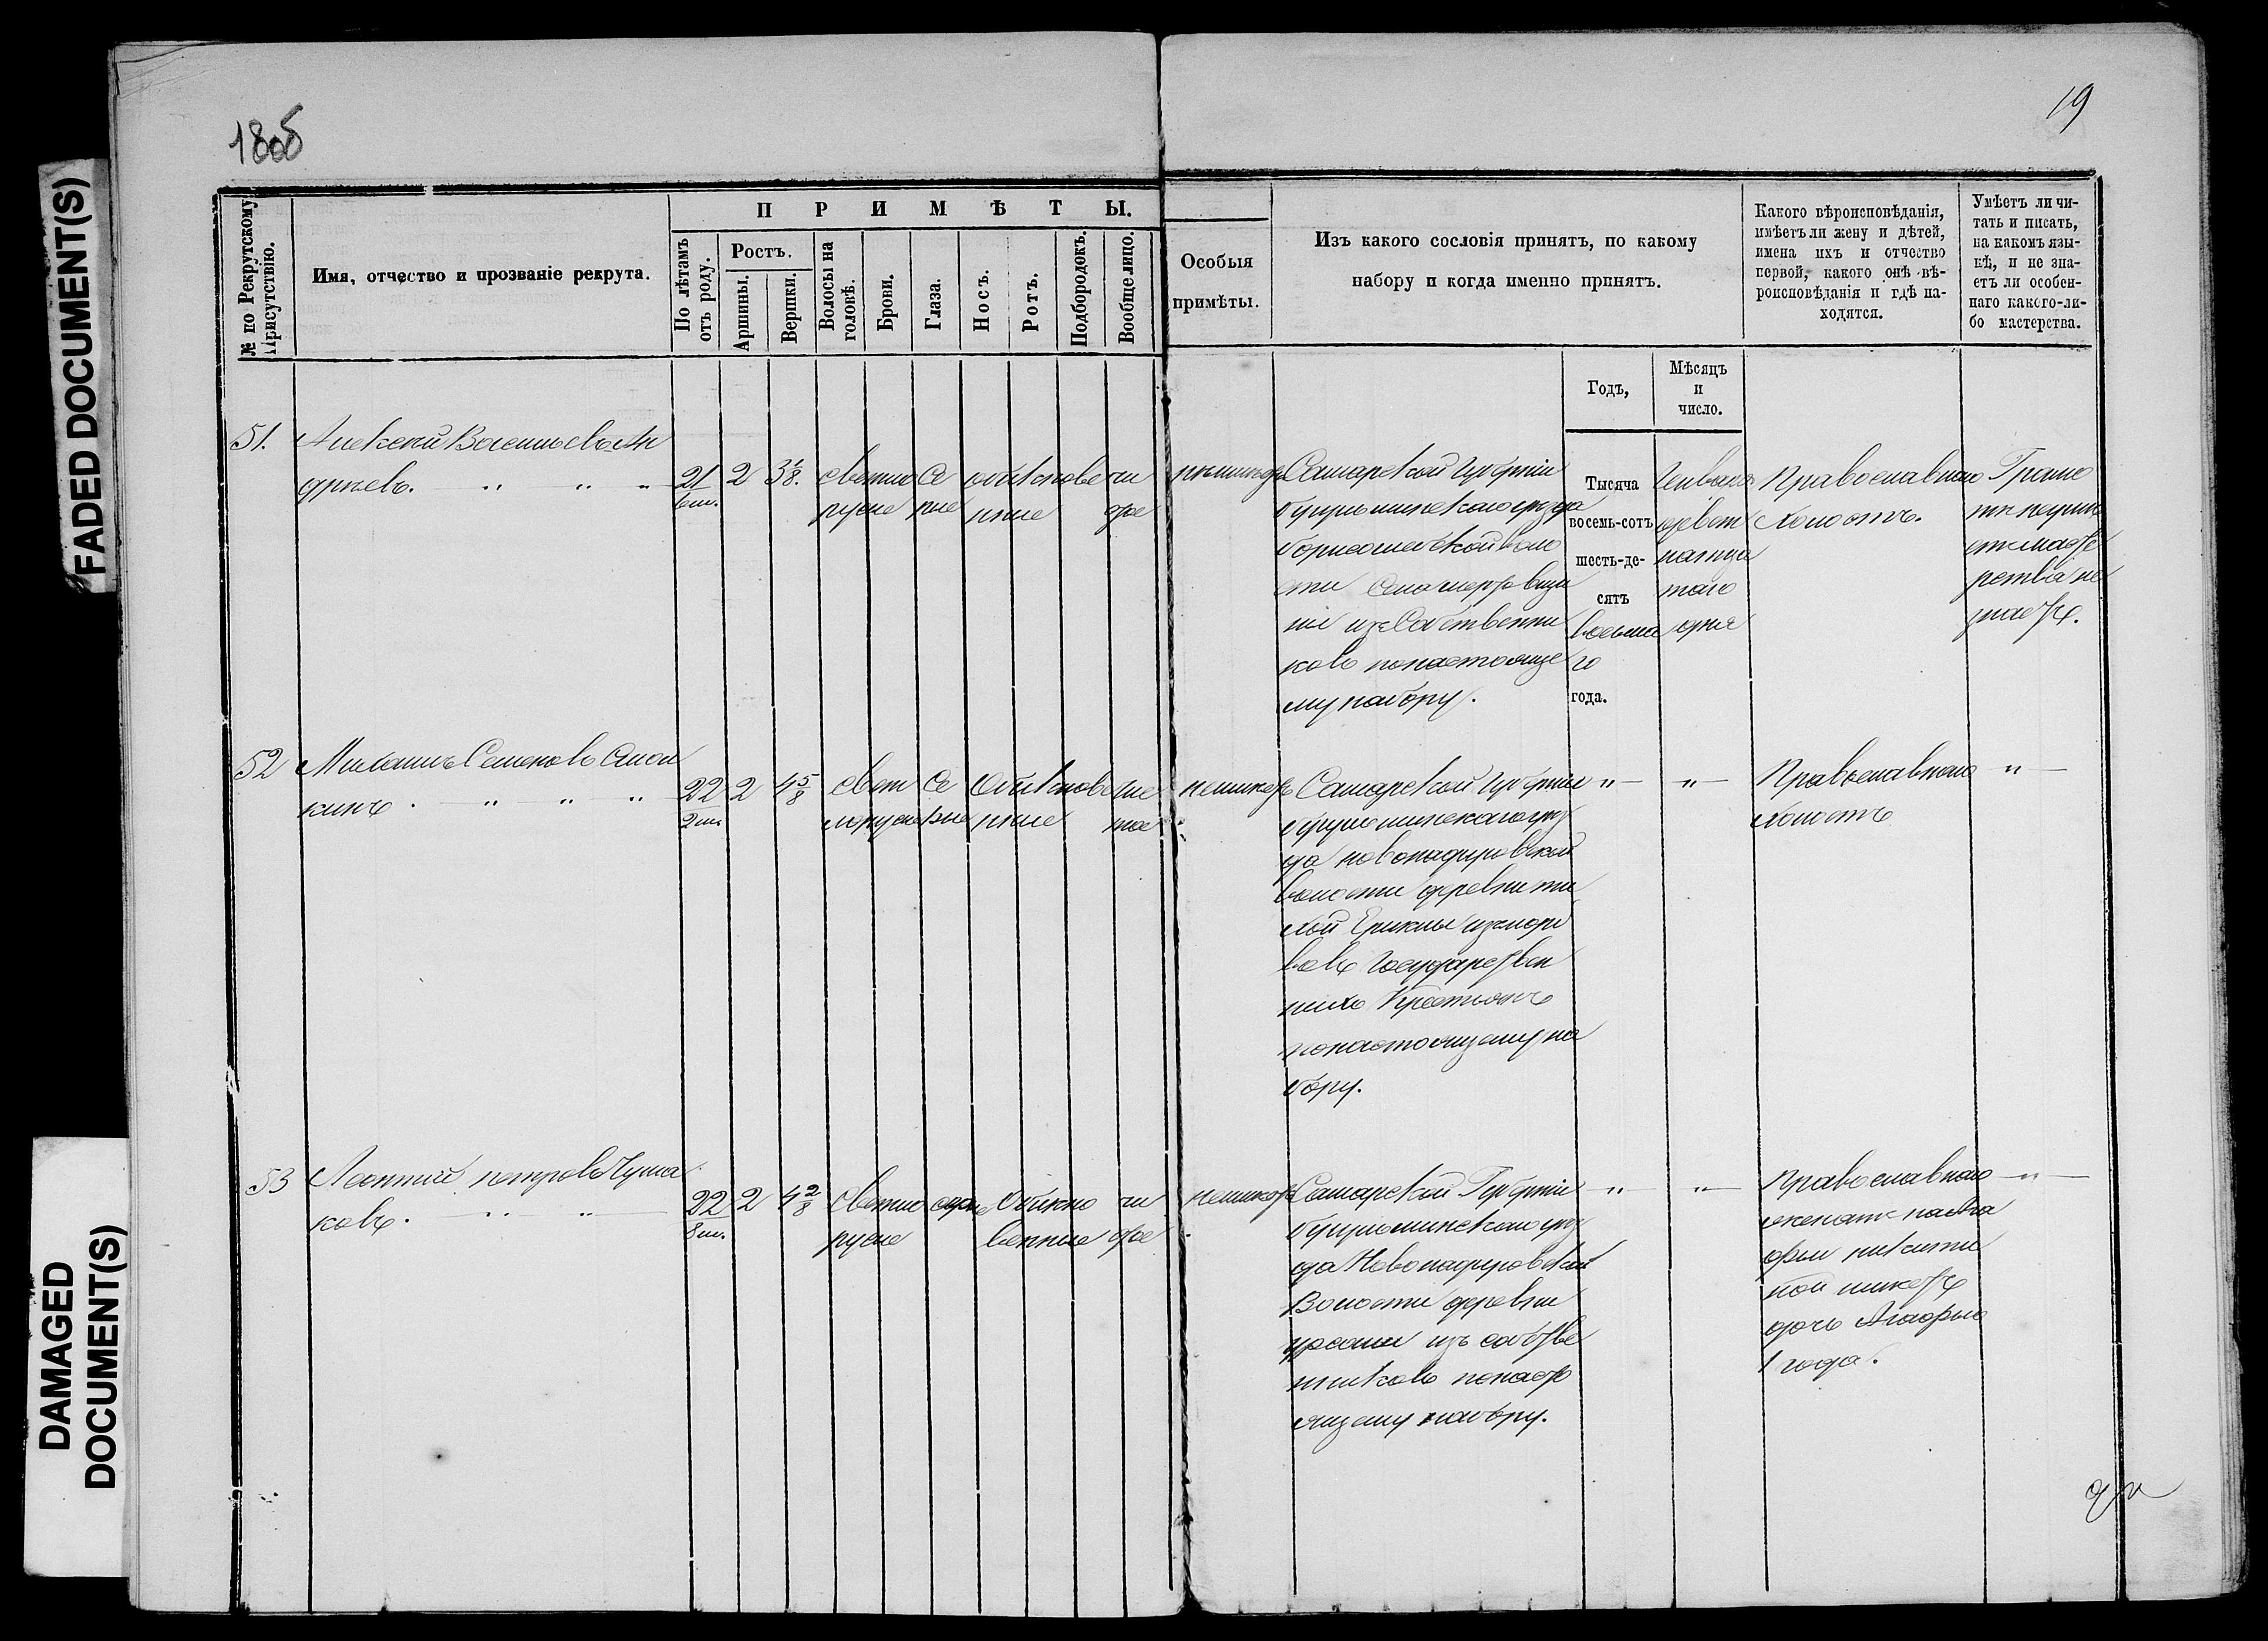 FADED DOCUMENT(S)
DAMAGED
DOCUMENT(S)
19
№ по Рекрутскому
Присутствію.
Имя, отчество и прозваніе рекрута.
ПРИМѢТЫ.
По лѣтамъ
отъ роду.
Ростъ.
Аршины.
Вершки.
Волосы на
головѣ.
Брови.
Глаза.
Носъ.
Ротъ.
Подбородокъ.
Вообще лицо.
Особыя
примѣты.
Изъ какого сословія принятъ, по какому
набору и когда именно принятъ.
Какого вѣроисповѣданія,
имѣетъ ли жену и дѣтей,
имена ихъ и отчество
первой, какого онѣ вѣ-
роисповѣданія и гдѣ на-
ходятся.
Умѣетъ ли чи-
тать и писать,
на какомъ язы-
кѣ, и не зна-
етъ ли особен-
наго какого-ли-
бо мастерства.
Годъ,
Мѣсяцъ
и
число.
51.
Алексѣй Васильевъ Ан
дреевъ. " " "
21
6 м.
2
3 1/8.
светло
русые
Се
рые
обыкнове
нные
чи
стое
Самарской Губерніи
бугульминскаго уезда
воло
сти Села
изъ Собственни
ковъ по настояще
му набору.
Тысяча
восемь-сотъ
шесть-де-
сятъ
восьма
го
года.
Генваря
девят
надца
таго
дня
Православнаго
Холостъ.
Грамо
мастe
рства не
знаетъ.
52
Семеновъ
кинъ. " " "
22
2 м.
2
4 5/8
свет
лорусы
Се
рые
Обыкнове
нные
чис
тое
Самарской Губерніи
бугульминскаго уез
да новонадыровской
волости деревни ти
хой
Государствен
ныхъ Крестьянъ
по настоящему на
бору.
" —
" —
Православнаго
холостъ
" —
53
Леонтий петровъ Чума
ковъ. " "
22
8 м.
2
4 2/8
светло
русые
серые
Обыкно
венные
чи
стое
Самарской Губерніи
бугульминскаго уез
да Новонадыровской
Волости деревни
изъ собстве
нниковъ по наст
ящему набору.
" —
" —
Православнаго
женатъ на Ага
фьи никити
ной имеетъ
дочь Агафью
1 года.
" —